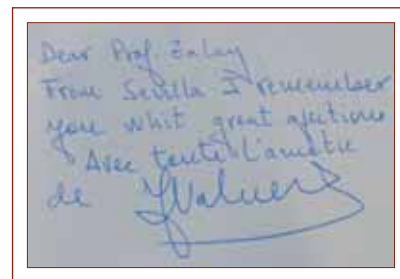 Dear Prof. Zalay
From Sevilla I remember
you whit great afections
Avec toute l'amitié
de